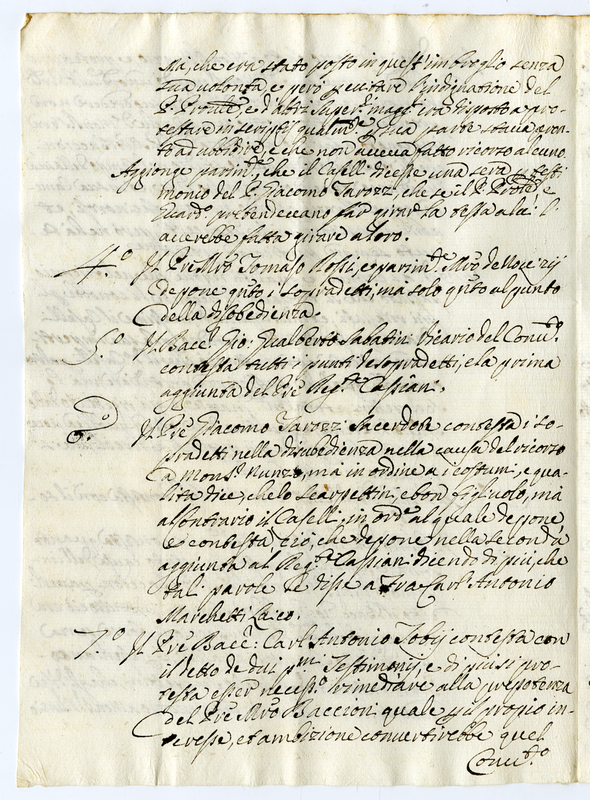 Ma, che era stato posto in quest'imbroglio senza
sua volontà, e però p evitare l'indignatione del
P. e d'altri Super: magg: era disposto a pro-
testare in scriptis qualm.te p sua parte stava pron-
to ad ubidire, e che non aveva fatto ricorso alcuno.
Aggionge parim.te, che il Casell: dicesse una sera testi
monio del P. Giacomo Tarozzi, che se il P. e
Vicard: pretendevano far girar la testa a lui l'
averebbe fatta girare a loro.
4.° Il Pre Mro Tomaso Rossi, e parim.te Mro de Novizij
depone q.to i sopradetti, ma solo q.to al punto
della disobedienza.
5.° Il Bacc. Gio: Gualberto Sabatini Vicario del Conv.to
contesta tutti i punti de sopradetti, e la prima
aggiunta del Pre Reg.te Cassiani.
6.° Il Pre Giacomo Tarozzi Sacerdote contesta i so-
pradetti nella disubedienza nella causa del ricorso
a Mons.r Nunzo, mà in ordine a i costumi, e qua-
lità dice, che lo Scarpettini, è bon figliuolo, mà
al contrario il Caselli, in ord.e al quale depone
e contesta ciò, che depone nella seconda
aggiunta al Reg.te Cassiani dicendo di più, che
tali parole le disse a Fra Carl' Antonio
Marchetti Laico.
7.° Il Pre Bacc: Carl' Antonio Tobij contesta con
il detto de dui p.mi Testimonij, e di più si pro-
testa esser necess.o rimediare alla prepotenza
del Pre Mro Baccioni quale p il propio in-
teresse, et ambizione convertirebbe quel
Conv.to